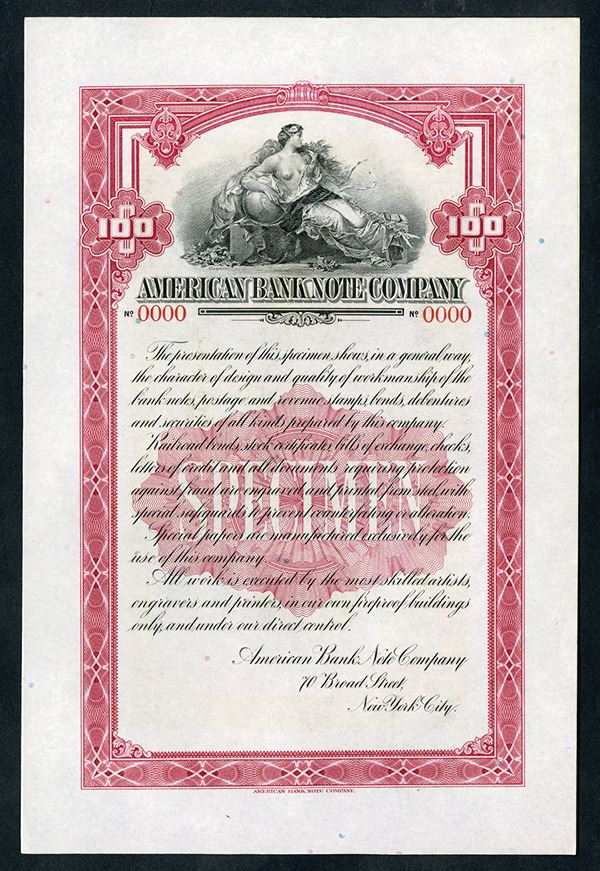 100 100
AMERICAN BANK NOTE COMPANY
Nº 0000 Nº 0000
The presentation of this specimen, shows, in a general way,
the character of design and quality of workmanship of the
bank-notes, postage and revenue stamps, bonds, debentures
and securities of all kinds prepared by this company.
Railroad bonds, stock certificates, bills of exchange, checks,
letters of credit and all documents, requiring protection
against fraud are engraved and printed from steel, with
special safeguards to prevent counterfeiting or alteration.
Special papers are manufactured exclusively for the
use of this company.
All work is executed by the most skilled artists,
engravers and printers, in our own fireproof buildings
only, and under our direct control.
SPECIMEN
American Bank Note Company
70 Broad Street,
New York City.
AMERICAN BANK NOTE COMPANY.